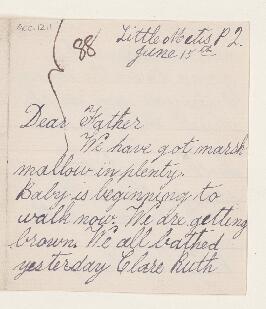 Acc. 1211
88
Little Metis P2.
June 15th
Dear Father
We have got marsh
mallow in plenty.
Baby is beginning to
walk now. We are getting
brown. We all bathed
yesterday Clare Ruth